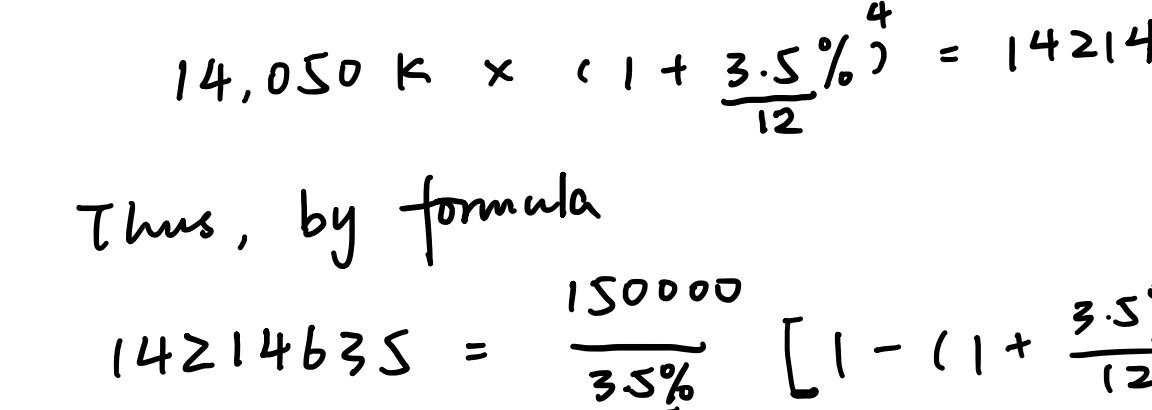 14,050 K × (1 + 3.5%/12)^4 = 14214
Thus, by formula
14214635 = 150000/3.5% [1 - (1 + 3.5/12